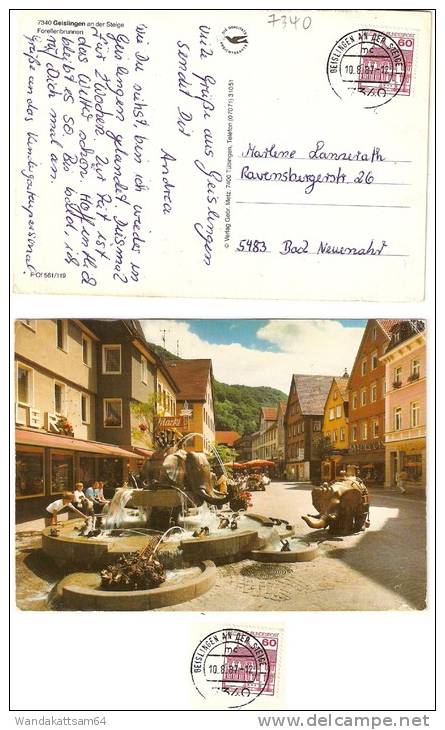 7340 Geislingen an der Steige
Forellenbrunnen
7340
GEISLINGEN AN DER STEIGE
mc
10.8.87-12
7340
BUNDESPOST
60
Wie Du siehst, bin ich wieder in
Geislingen gelandet. Diesmal
für 2 Wochen. Zur Zeit ist
das Wetter schön. Hoffentlich
bleibt es so. Bis bald
ruf Dich mal an.
Grüße an das Kindergartenpersonal.
Viele Grüße aus Geislingen
sendet Dir
Andrea
© Verlag Gebr. Metz, 7400 Tübingen, Telefon (07071) 31051
Marlene Lanzerath
Ravensburgerstr. 26
5483 Bad Neuenahr
P-Of 561/119
Markt
GEISLINGEN AN DER STEIGE
mc
10.8.87-12
7340
BUNDESPOST
60
Wandakattsam64